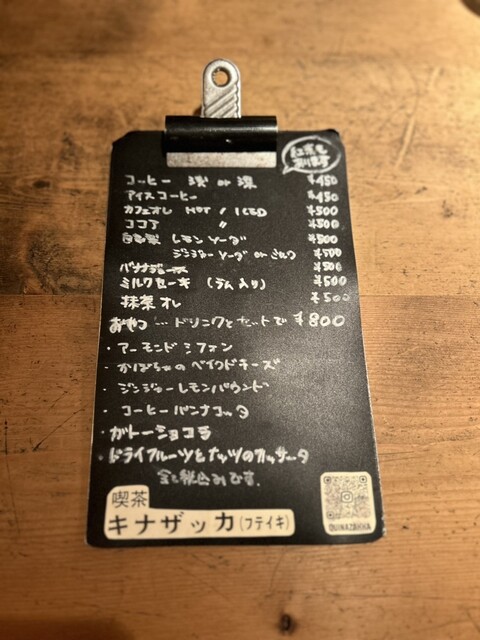 紅茶も
あります
コーヒー 浅 or 深 ¥450
アイスコーヒー ¥450
カフェオレ HOT / ICED ¥500
ココア 〃 ¥500
自家製 レモンソーダ ¥500
ジンジャーソーダ or ミルク ¥500
バナナジュース ¥500
ミルクセーキ (ラム入り) ¥500
抹茶オレ ¥500
おやつ … ドリンクとセットで ¥800
・アーモンドシフォン
・かぼちゃのベイクドチーズ
・ジンジャーレモンパウンド
・コーヒーパンナコッタ
・ガトーショコラ
・ドライフルーツとナッツのカッサータ
全て税込みです。
喫茶
キナザッカ(フテイキ)
QUINAZAKKA